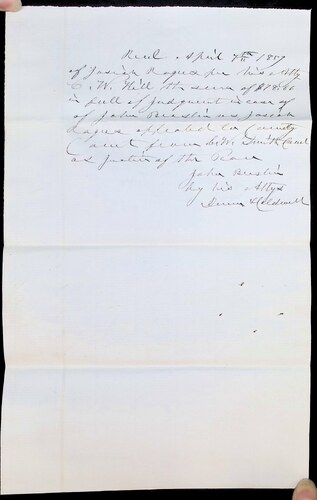 Recd April 7th 1857
of Josiah per his Atty
W. Hill the sum of
in full of Judgment in case of
of John Breslin vs Josiah
appealed to County
Court from D. W. Smith Court
as Justice of the Peace
John Breslin
by his Attys
Caldwell